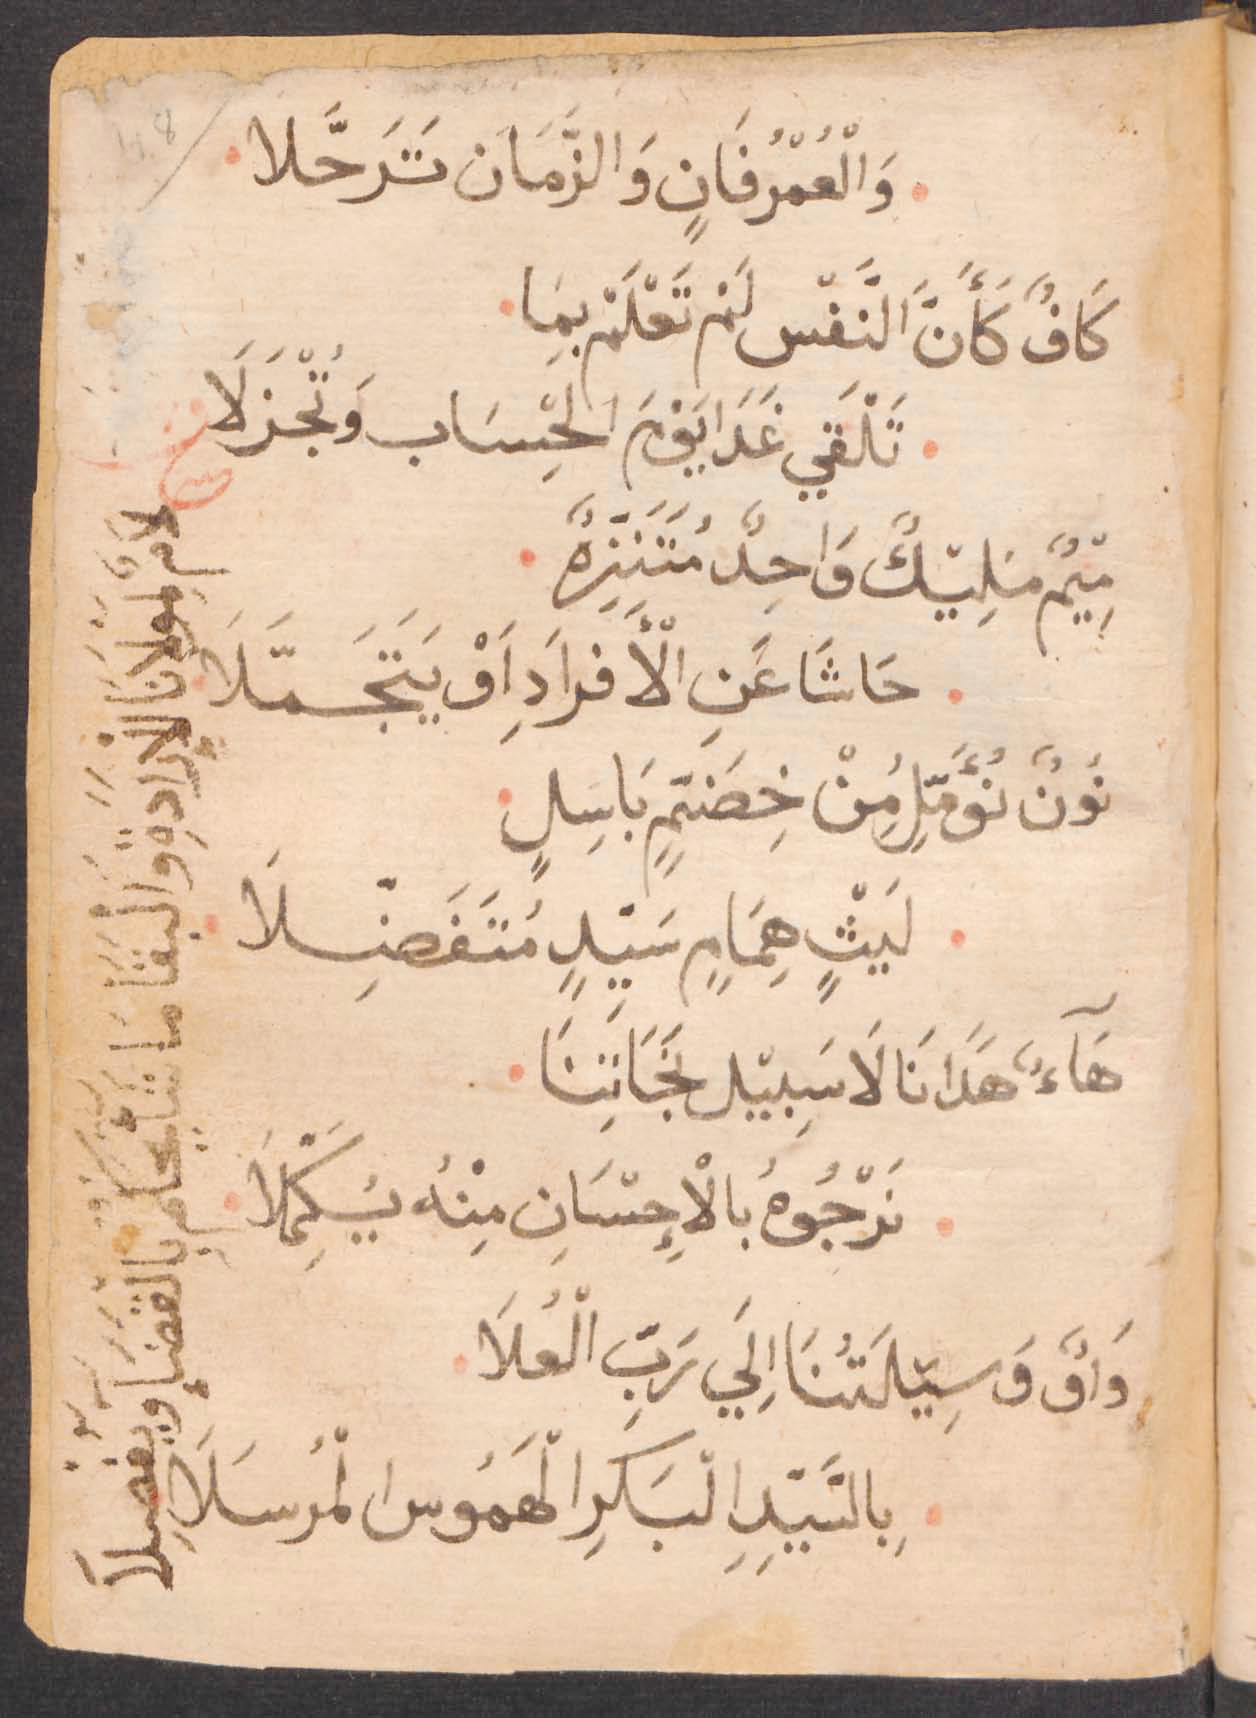 وَالْعُمْرُ فَانٍ وَالزَّمَانَ تَرَحَّلا
كَافٌ كَأَنَّ النَّفْس لَمْ تَعْلَمْ بِمَا
تَلْقَي غَدَا يَوْمَ الْحِسَاب وَتُجْزَلَا
مِيْمٌ مَلِيْكٌ وَاحِدٌ مُتَنَزِّهٌ
حَاشَا عَنِ الْأَفرَادِ اَوْ يَتَجَمَّلَا
نُونٌ نُؤَمِّلِ مُِنْ خِضَمٍّ بَاسِلٍ
لَيْثٍ هِمَامٍ سَيِّدٍ مُتَفَضِّلَا
هَآءٌ هَدَانَا لَا سَبِيْل نَجَاتِنَا
نَرْجُوهُ بالْاِحْسَانِ مِنْهُ يُسَكْمِلَا
وَاوٌ وَسِيْلَتُنَا اِلَي رَبِّ الْعُلَا
بِالسَّيِّدِ الْبَسَكَرِ الْهَمُوس الْمُرسَلَا
لامٌ لمولانَا الإرَادةِ وَالْبقَا مَا شَا يحكم بالقضَا ويفصِلَا